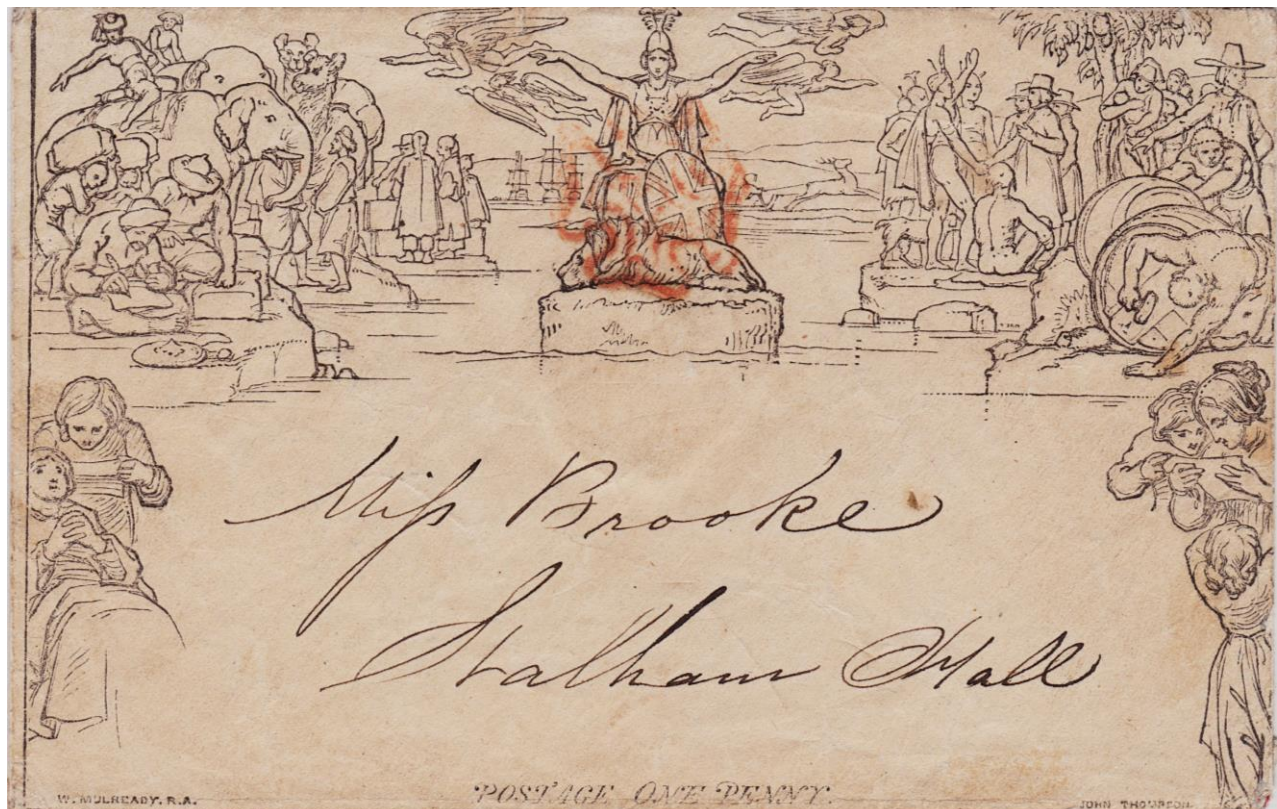 Miſs Brooke
Stalham Hall
W. MULREADY. R.A.
POSTAGE ONE PENNY.
JOHN THOMPSON